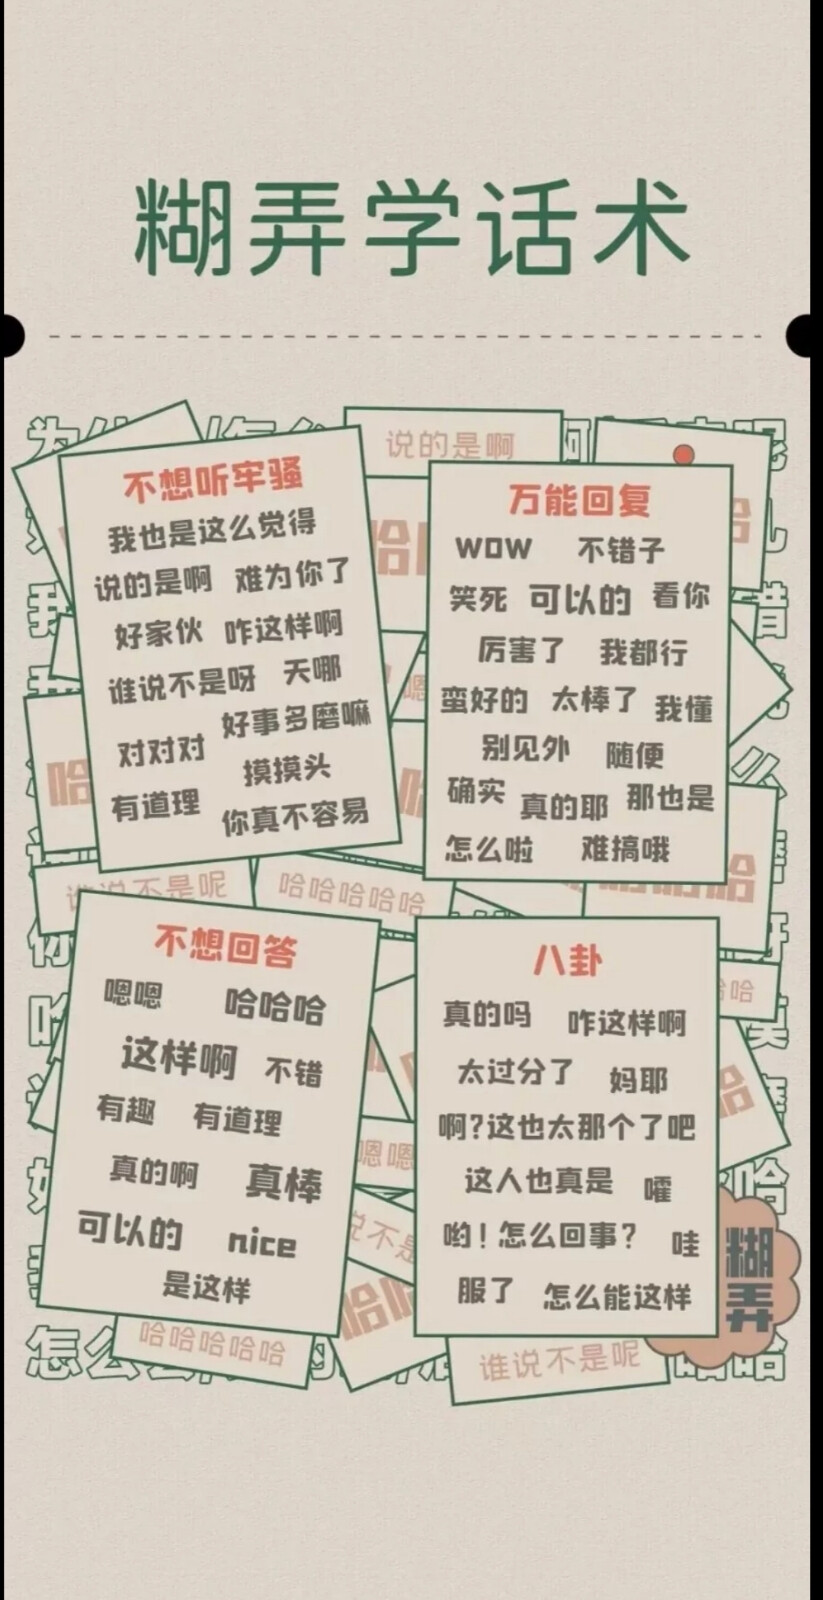 糊弄学话术
说的是啊
不想听牢骚
我也是这么觉得
说的是啊 难为你了
好家伙 咋这样啊
谁说不是呀 天哪
好事多磨嘛
对对对
摸摸头
有道理
你真不容易
万能回复
WOW 不错子
笑死 可以的 看你
厉害了 我都行
蛮好的 太棒了 我懂
别见外 随便
确实 真的耶 那也是
怎么啦 难搞哦
谁说不是呢
哈哈哈哈哈
不想回答
嗯嗯 哈哈哈
这样啊 不错
有趣 有道理
真的啊 真棒
可以的 nice
是这样
八卦
真的吗 咋这样啊
太过分了 妈耶
啊?这也太那个了吧
这人也真是 嚯
哟！怎么回事? 哇
服了 怎么能这样
糊弄
哈哈哈哈哈
谁说不是呢